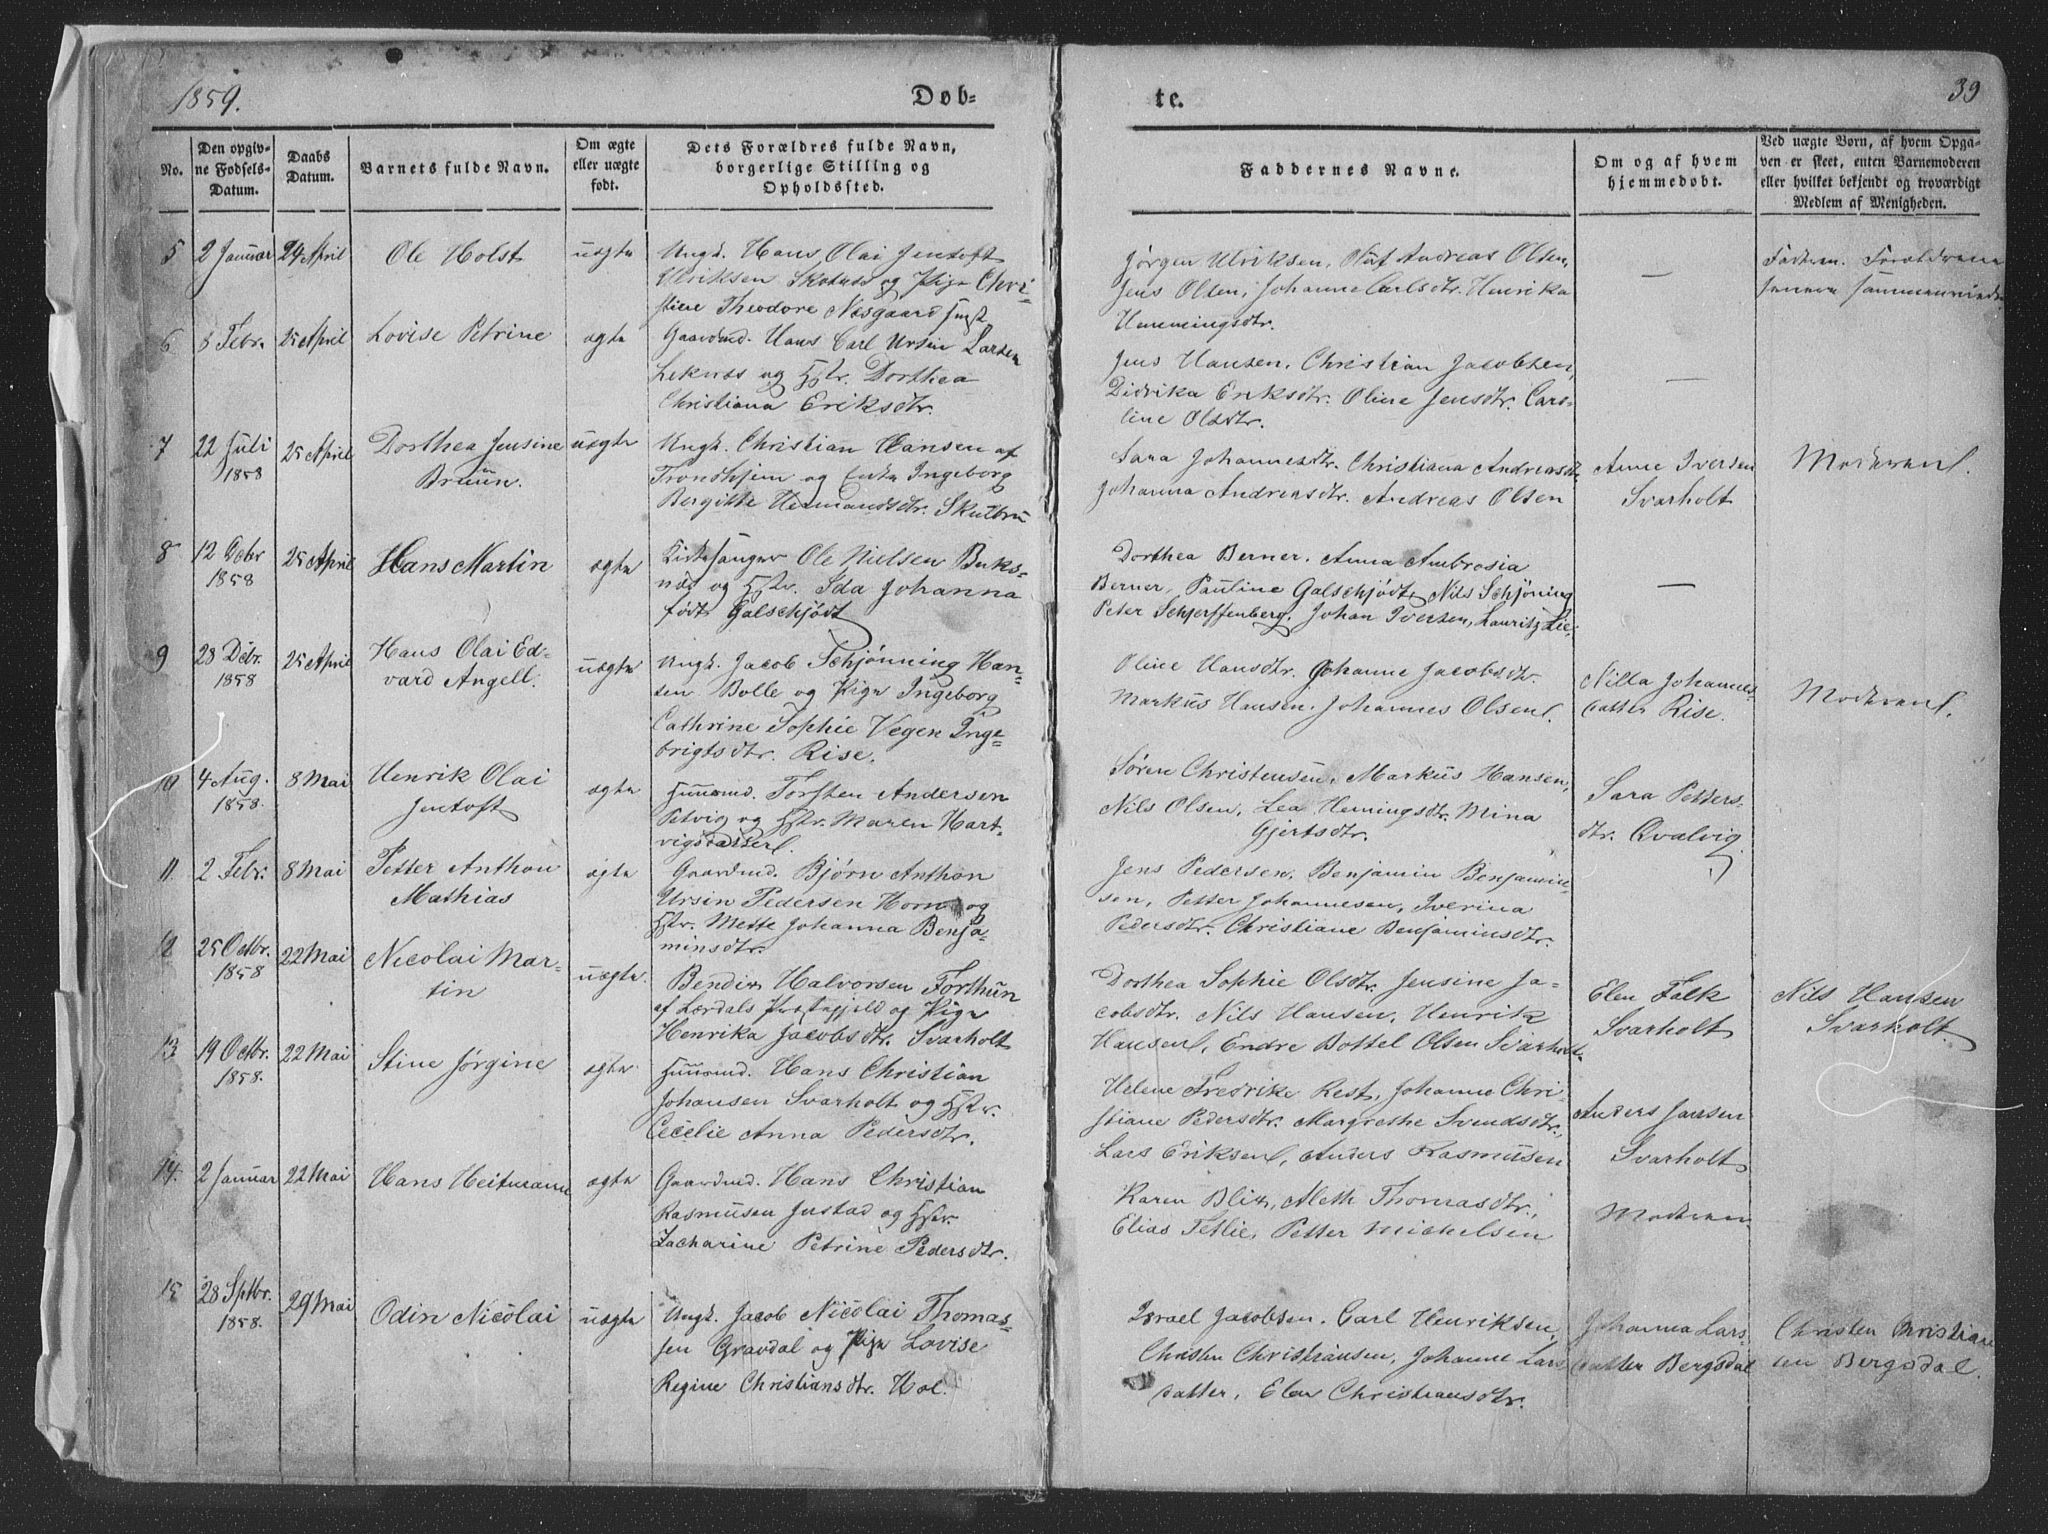 1859.
Døb-
te.
39
No.
Den opgiv-
ne Fødsels-
Datum.
Daabs
Datum.
Barnets fulde Navn.
Om ægte
eller uægte
født.
Dets Forældres fulde Navn,
borgerlige Stilling og
Opholdssted.
Faddernes Navne.
Om og af hvem
hjemmedøbt.
Ved uægte Børn, af hvem Opga-
ven er skeet, enten Barnemoderen
eller hvilket bekjendt og troværdigt
Medlem af Menigheden.
5 2 Januar 24 April Ole Holst uægte
Ungk. Hans Olai Jentoft
Ulriksen Skotnæs og Pige Chri-
stine Theodore Næsgaard
Jørgen Ulriksen, Oluf Andreas Olsen,
Jens Olsen, Johanne Carlsdtr. Henrika
Hemmingsdtr.
—
Faderen. Forældrene
senere
6 Febr. 25 April Lovise Petrine ægte
Gaardmd. Hans Carl Ursin Larsen
Leknæs og Hstr. Dorthea
Christiana Eriksdtr.
Jens Hansen, Christian Jacobsen,
Didrika Eriksdtr. Oline Jensdtr. Caro-
line Olsdtr.
—
7 22 Juli
1858
25 April
Dorthea Jensine
Bruun.
uægte
Ungk. Christian Hansen af
Trondhjem og Enke Ingeborg
Bergitte Hermandsdtr. Skulbru
Sara Johannesdtr. Christiana Andreasdtr.
Johanna Andreasdtr. Andreas Olsen
Anne Iversen
Svarholt
Moderen.
8 12 Octbr
1858
25 April
Hans Martin
ægte
Kirkesanger Ole Nielsen Buks-
næs og Hstr. Ida Johanna
født Galschjødt
Dorthea Berner. Anna Ambrosia
Berner, Pauline Galschjødt, Nils Schjøning
Peter Schjerffenberg, Johan Iversen, Lauritz Lie,
—
9 28 Debr.
1858
25 April
Hans Olai Ed-
vard Angell.
uægte
Ungk. Jacob Schjønning Han-
sen Bolle og Pige Ingeborg
Cathrine Sophie Vegen Inge-
brigtsdtr. Rise.
Oline Hansdtr. Johanne Jacobsdtr.
Markus Hansen. Johannes Olsen.
Nilla Johannes-
datter Rise.
Moderen.
10 4 Aug.
1858.
8 Mai
Henrik Olai
Jentoft
ægte
Huusmd. Torsten Andersen
Petvig og Hstr. Maren Hart-
vigsdatter.
Søren Christensen, Markus Hansen,
Nils Olsen, Lea Hemingsdtr. Mina
Gjertsdtr.
Sara Petters-
dtr. Qvalvig
11. 2 Febr. 8 Mai
Petter Anthon
Mathias
ægte
Gaardmd. Bjørn Anthon
Ursin Pedersen Horn og
Hstr. Mette Johanna Benja-
minsdtr.
Jens Pedersen, Benjamin Benjamin-
sen, Petter Johannesen, Iverina
Pedersdtr. Christiane Benjaminsdtr.
12 25 Octbr.
1858
22 Mai
Nicolai Mar-
tin
uægte
Bendix Halvorsen Forthun
af Lærdals Præstegjeld og Pige
Henrika Jacobsdtr. Svarholt
Dorthea Sophie Olsdtr. Jensine Ja-
cobsdtr. Nils Hansen, Henrik
Hansen, Endre Bottel Olsen Svarholt
Elen Falk
Svarholt
Nils Hansen
Svarholt
13 19 Octbr.
1858.
22 Mai
Stine Jørgine
ægte
Huusmd. Hans Christian
Johansen Svarholt og Hstr.
Cecelie Anna Pedersdtr.
Helene Fredrike Rest, Johanne Chri-
stiane Pedersdtr. Margrethe Svendsdtr.,
Lars Eriksen, Anders Rasmusen
Anders Jansen
Svarholt
14. 2 Januar 22 Mai
Hans Heitmann
ægte
Gaardmd. Hans Christian
Rasmusen Justad og Hstr.
Zacharine Petrine Pedersdtr.
Karen Blix, Aleth Thomasdtr.,
Elias Tetlie, Petter Michelsen
Moderen
15 28 Septbr.
1858.
29 Mai
Odin Nicolai
uægte
Ungk. Jacob Nicolai Thomas-
sen Gravdal og Pige Lovise
Regine Christiansdtr. Hol.
Israel Jacobsen. Carl Henriksen,
Christen Christiansen, Johanne Lars
datter, Elen Christiansdtr.
Johanna Lars-
datter Bergsdal
Christen Christian
sen Bergsdal.